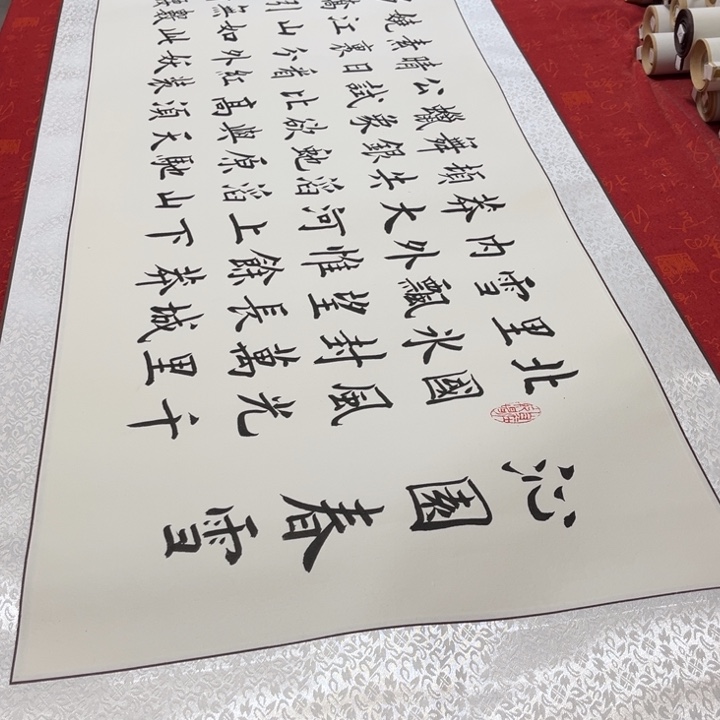 沁園春雪
北國風光千
里冰封萬里
雪飄望長城
內外惟餘莽
莽大河上下
頓失滔滔山
舞銀蛇原馳
蠟象欲與天
公試比高須
晴日看紅裝
素裹分外妖
嬈江山如此
嬌引無數